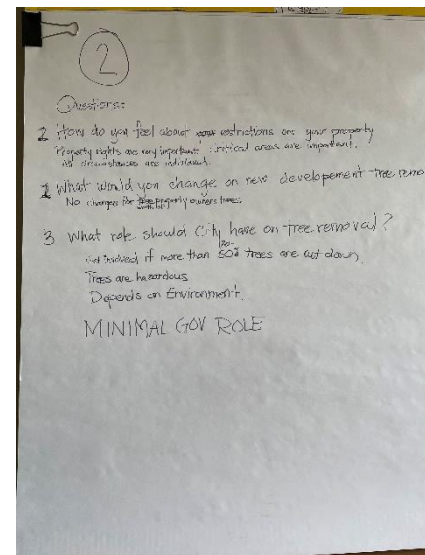 2
Questions:
2 How do you feel about restrictions on your property
Property rights are very important. critical areas are important.
all circumstances are individual.
1 What would you change on new developement tree remo
No changes for property owners trees.
3 What role should City have on tree removal?
Get involved if more than trees are cut down.
Trees are hazardous
Depends on Environment.
MINIMAL GOV ROLE